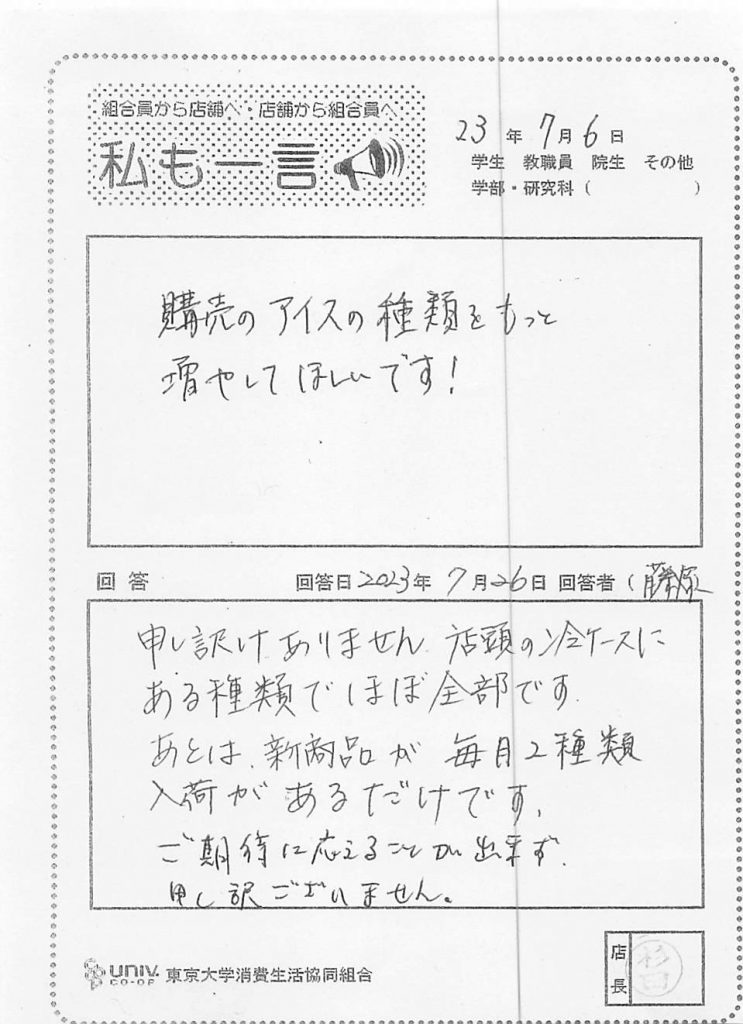 組合員から店舗へ・店舗から組合員へ
私も一言
23年7月6日
学生 教職員 院生 その他
学部・研究科( )
購売のアイスの種類をもっと
増やしてほしいです!
回答 回答日2023年7月26日 回答者(藤塚
申し訳けありません 店頭の冷ケースに
ある種類でほぼ全部です.
あとは、新商品が毎月2種類
入荷があるだけです.
ご期待に応えることが出来ず.
申し訳ございません。
UNIV. CO-OP 東京大学消費生活協同組合
店長 杉田